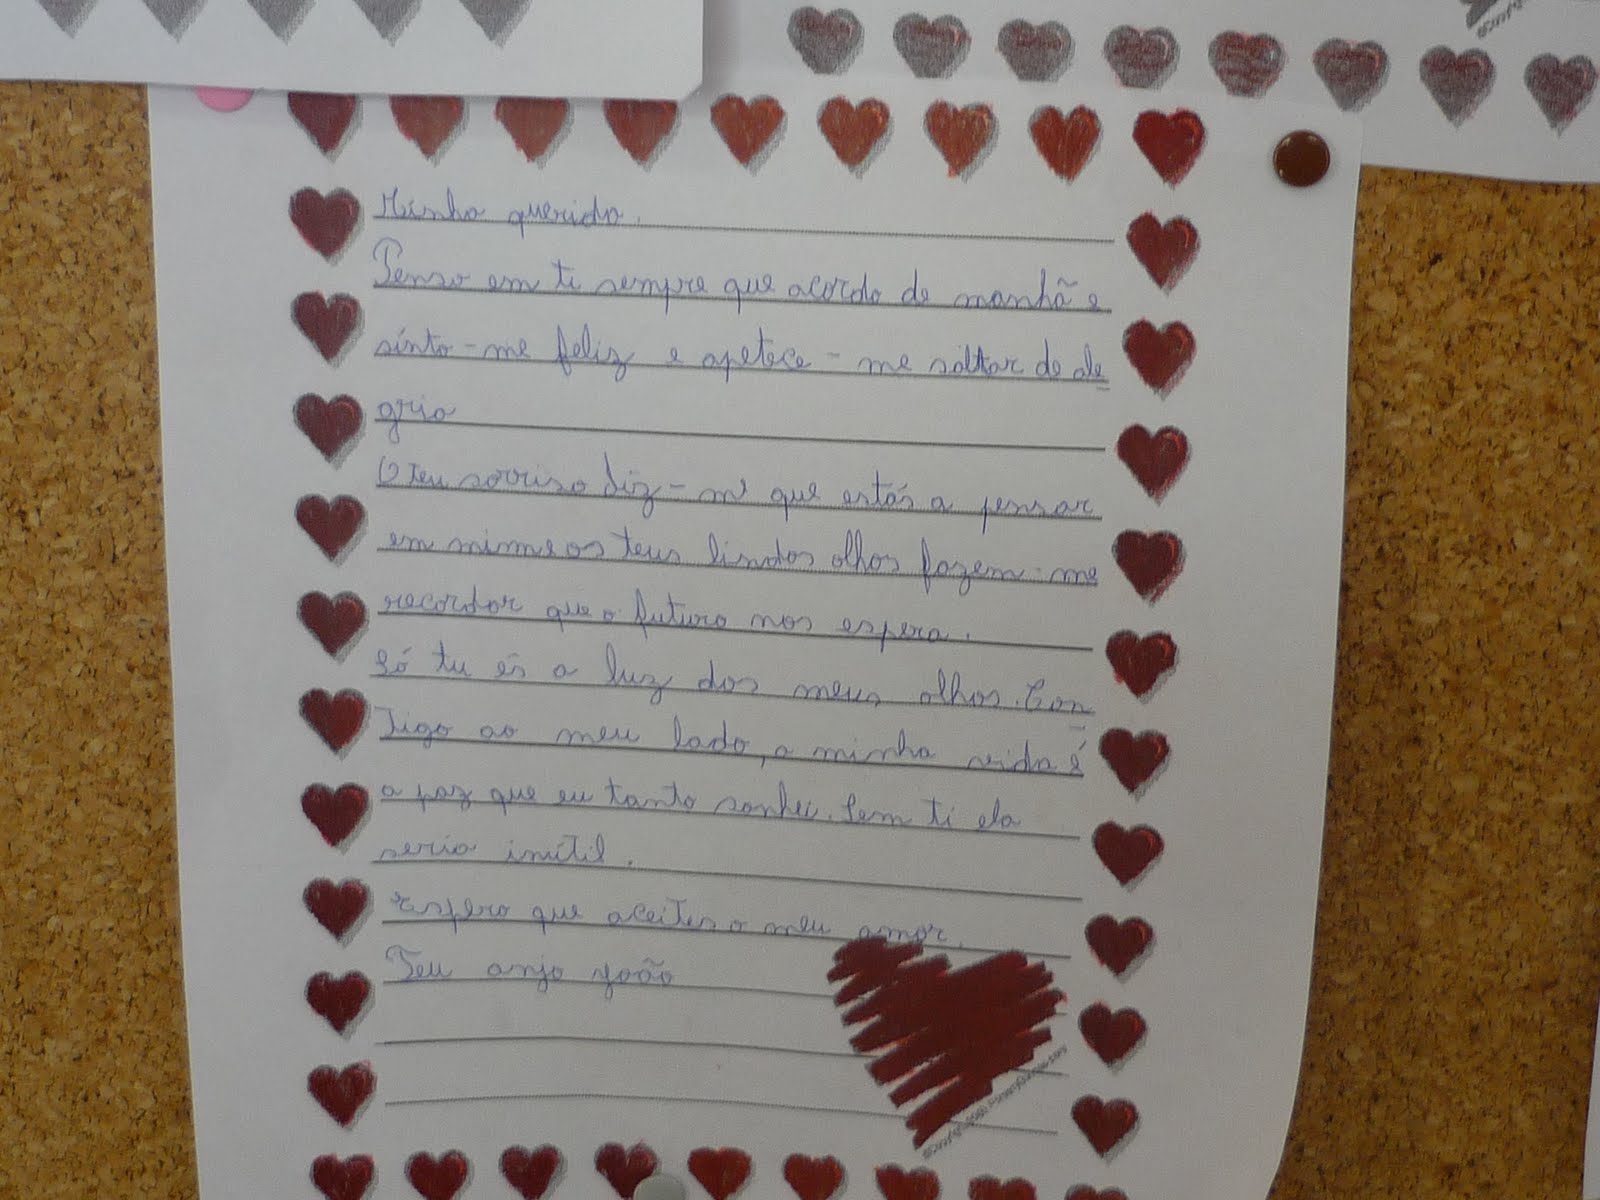 Minha querida.
Penso em ti sempre que acordo de manhã e
sinto-me feliz e apetece-me saltar de ale
gria
O teu sorriso diz-me que estás a pensar
em mim e os teus lindos olhos fazem-me
recordar que o futuro nos espera.
Só tu és a luz dos meus olhos. Con
tigo ao meu lado, a minha vida é
a paz que eu tanto sonhei. Sem ti ela
seria inútil.
Espero que aceites o meu amor.
Teu anjo João